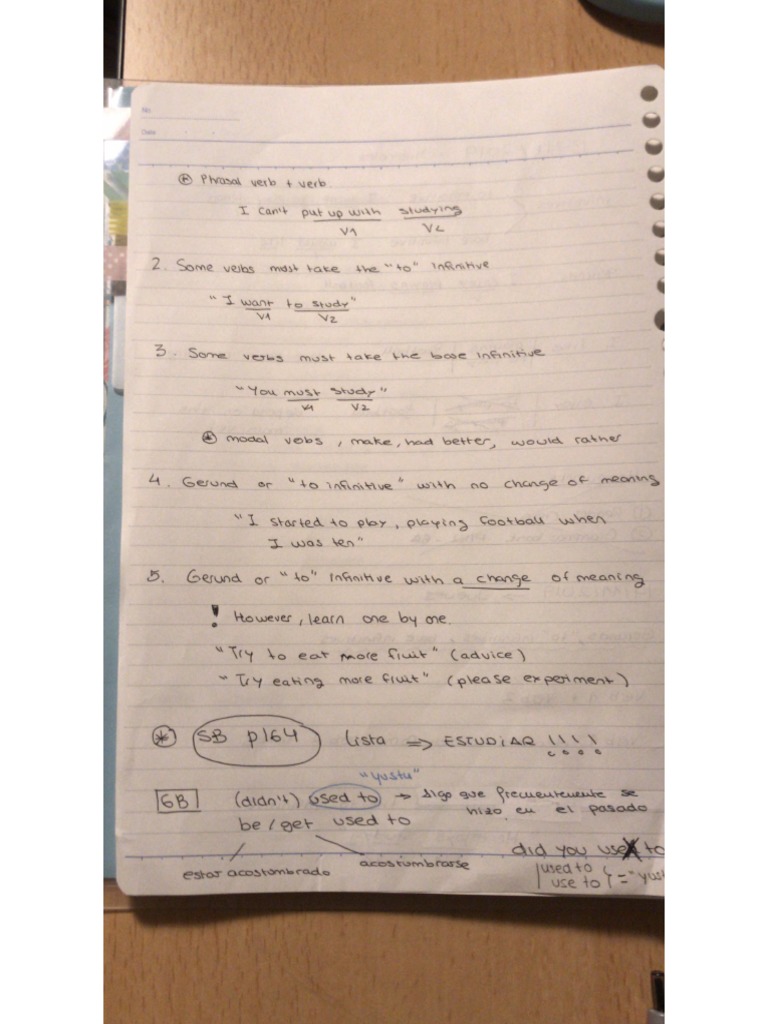 No.
Date
* Phrasal verb + verb.
I can't put up with studying
V1 V2
2. Some verbs must take the "to" infinitive
"I want to study"
V1 V2
3. Some verbs must take the base infinitive
"You must study"
V1 V2
* modal verbs, make, had better, would rather
4. Gerund or "to infinitive" with no change of meaning
"I started to play, playing football when
I was ten"
5. Gerund or "to" infinitive with a change of meaning
! However, learn one by one.
"Try to eat more fruit" (advice)
"Try eating more fruit" (please experiment)
* SB p164 Lista => ESTUDIAR !!!!
"yustu"
6B (didn't) used to → algo que frecuentemente se
hizo en el pasado
be / get used to
did you used to
estar acostumbrado acostumbrarse
used to
use to } = "yust